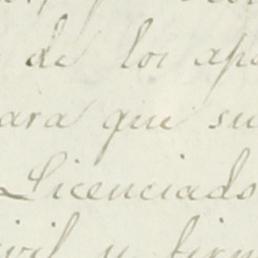 de los apo
ara que su
Licenciado
ivil y firm